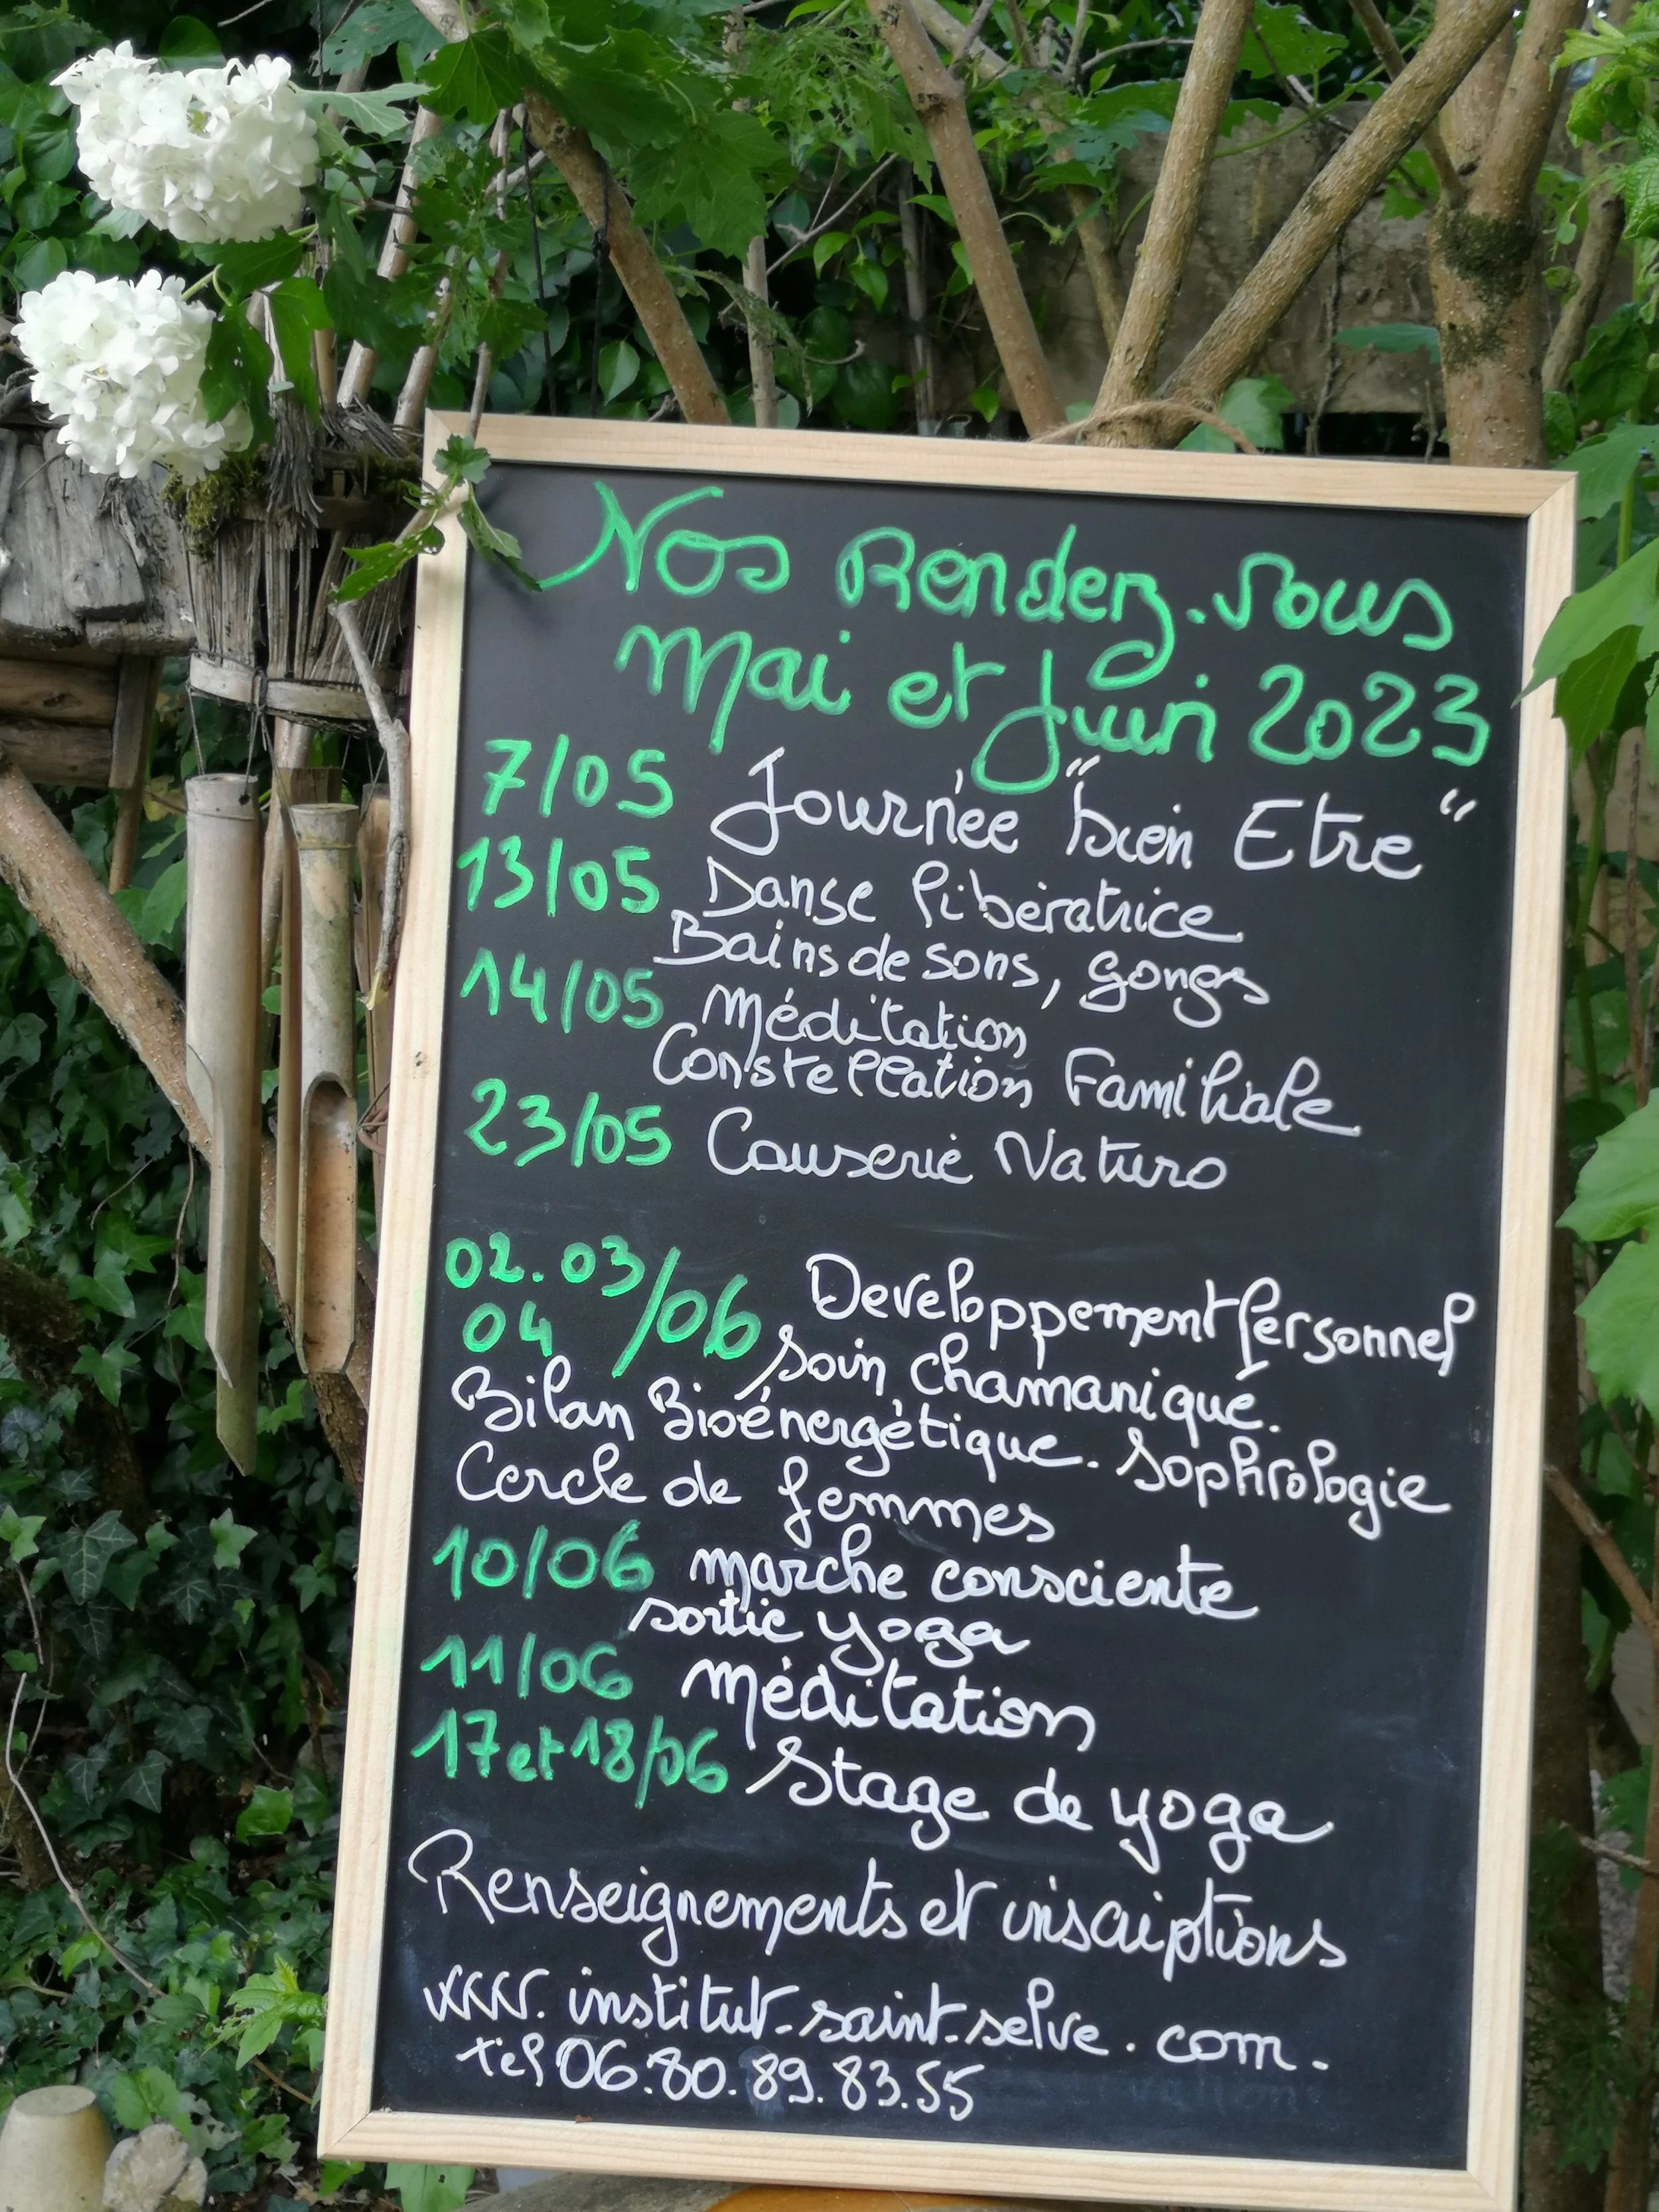 Nos Rendez-vous
Mai et Juin 2023
7/05 Journée "bien Etre"
13/05 Danse libératrice
Bains de sons, gongs
14/05 Méditation
Constellation Familiale
23/05 Causerie Naturo
02.03/06 Developpement Personnel
04 Soin chamanique.
Bilan Bioénergétique. Sophrologie
Cercle de femmes
10/06 marche consciente
sortie yoga
11/06 Méditation
17 et 18/06 Stage de yoga
Renseignements et inscriptions
www.institut-saint-selve.com.
tel 06.80.89.83.55